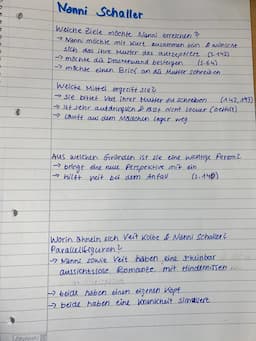 Nanni Schaller
Welche Ziele möchte Nanni erreichen?
→ Nanni möchte mit Kurt zusammen sein & wünscht
sich das ihre Mutter das akzeptiert (S.142)
→ möchte die Drachenwand besteigen (S.64)
→ möchte einen Brief an die Mutter schreiben
Welche Mittel ergreift sie?
→ Sie bittet Veit ihrer Mutter zu schreiben (142,143)
→ ist sehr aufdringlich & lässt nicht locker
→ läuft aus dem Mädchen lager weg
Aus welchen Gründen ist sie eine wichtige Person?
→ bringt eine neue Perspektive mit ein
→ hilft Veit bei dem Anfall
Worin ähneln sich Veit Kolbe & Nanni Schaller?
Parallelfiguren?
→ Nanni sowie Veit haben eine scheinbar
aussichtslose Romanze mit Hindernissen
→ beide haben einen eigenen Kopf
→ beide haben eine Krankheit simuliert